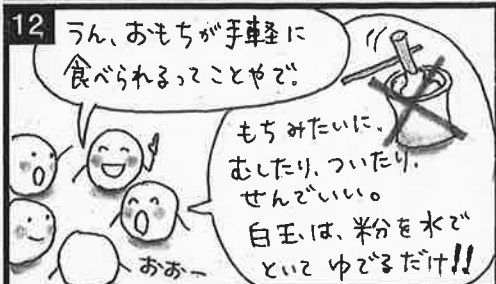 12
うん、おもちが手軽に
食べられるってことやで。
もちみたいに、
むしたり、ついたり、
せんでいい。
白玉は、粉を水で
といて ゆでるだけ!!
おおー